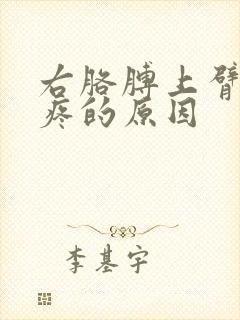 右胳膊上臂
疼的原因
李基宇